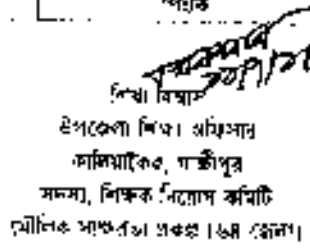 শিক্ষা বিশ্বাস
উপজেলা শিক্ষা অফিসার
কালিয়াকৈর, গাজীপুর
সদস্য, শিক্ষক নিয়োগ কমিটি
মৌলিক সাক্ষরতা প্রকল্প (৬৪ জেলা)